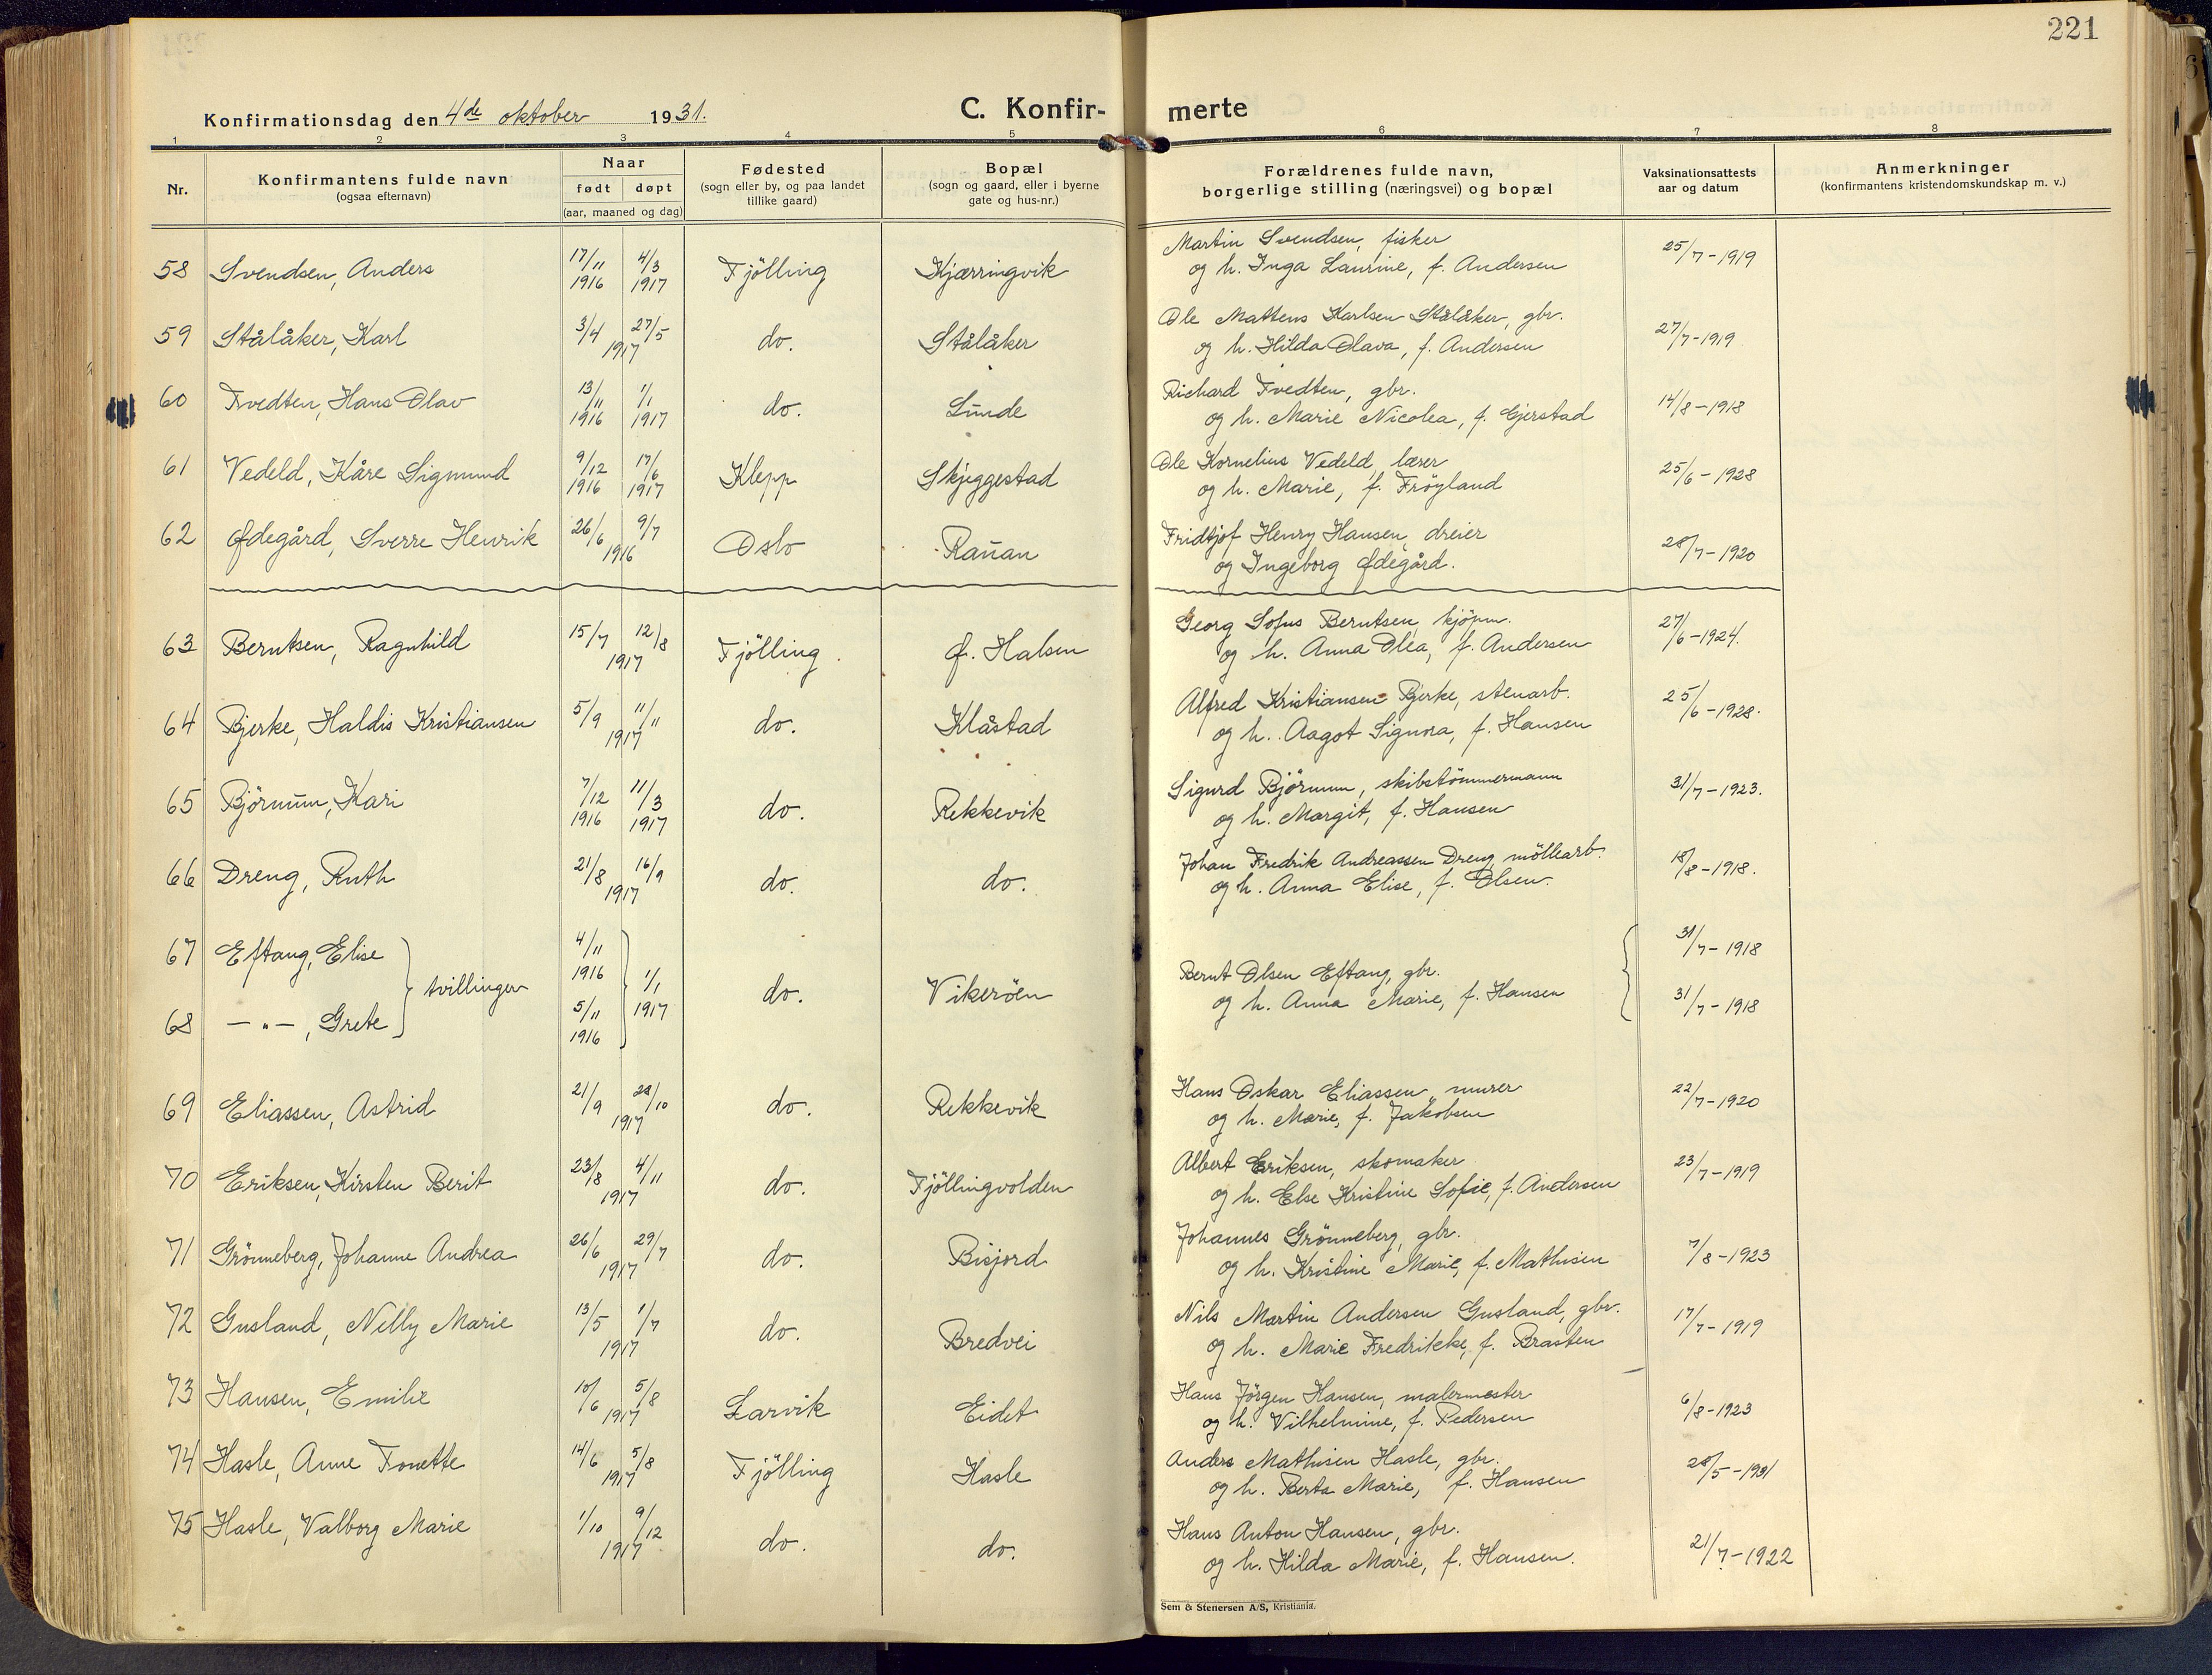 221
Konfirmationsdag den 4de oktober 1931.
C. Konfir- merte
1 2 3 4 5 6 7 8
Nr.
Konfirmantens fulde navn
(ogsaa efternavn)
Naar
født døpt
(aar, maaned og dag)
Fødested
(sogn eller by, og paa landet
tillike gaard)
Bopæl
(sogn og gaard, eller i byerne
gate og hus-nr.)
Forældrenes fulde navn,
borgerlige stilling (næringsvei) og bopæl
Vaksinationsattests
aar og datum
Anmerkninger
(konfirmantens kristendomskundskap m. v.)
58 Svendsen, Anders 17/11 1916 4/3 1917 Fjölling Kjærringvik Martin Svendsen, fisker
og h. Inga Laurine, f. Andersen 25/7-1919
59 Stålåker, Karl 3/4 27/5 1917 do. Stålåker Ole Mattens Karlsen Stålåker, gbr.
og h. Hilda Olava, f. Andersen 27/7-1919
60 Tvedten, Hans Olav 13/11 1916 1/1 1917 do. Linde Richard Tvedten, gbr.
og h. Marie Nicolea, f. Gjerstad 14/8-1918
61 Vedeld, Kåre Sigmund 9/12 1916 17/6 1917 Klepp Skjeggestad Ole Kornelius Vedeld, lærer
og h. Marie, f. Fröyland 25/6-1928
62 Ødegård, Sverre Henrik 26/6 9/7 1916 Oslo Rauan Fridtjof Henry Hansen, dreier
og Ingeborg Ødegård. 28/7-1920
63 Berntsen, Ragnhild 15/7 12/8 1917 Fjölling. Ø. Halsen Georg Sofus Berntsen, kjöpm.
og h. Anna Olea, f. Andersen 27/6-1924.
64 Bjerke, Haldis Kristiansen 5/9 11/11 1917 do. Klåstad Alfred Kristiansen Bjerke, stenarb.
og h. Aagot Signora, f. Hansen 25/6-1928.
65 Björnum, Kari 7/12 1916 11/3 1917 do. Rekkevik Sigurd Björnum, skibstömmermann
og h. Margit, f. Hansen 31/7-1923.
66 Dreng, Ruth 21/8 16/9 1917 do. do. Johan Fredrik Andreassen Dreng, möllearb.
og h. Anna Elise, f. Olsen. 18/8-1918.
67 Eftang, Elise 4/11 1916 31/7-1918
tvillinger 1/1 1917 do. Vikeröen Bernt Olsen Eftang, gbr.
og h. Anna Marie, f. Hansen
68 — " —, Grete 5/11 1916 31/7-1918
69 Eliassen, Astrid 21/9 28/10 1917 do. Rekkevik Hans Oskar Eliassen, murer
og h. Marie, f. Jakobsen 22/7-1920
70 Eriksen, Kirsten Berit 23/8 4/11 1917 do. Fjöllingvolden Albert Eriksen, skomaker
og h. Else Kristine Sofie, f. Andersen 23/7-1919
71 Grönneberg, Johanne Andrea 26/6 29/7 1917 do. Bisjord Johannes Grönneberg, gbr.
og h. Kristine Marie, f. Mathisen 7/8-1923
72 Gusland, Nelly Marie 13/5 1/7 1917 do. Bredvei Nils Martin Andersen Gusland, gbr.
og h. Marie Fredrikke, f. Brasten 17/7-1919
73 Hansen, Emilie 10/6 5/8 1917 Larvik Eidet Hans Jörgen Hansen, malermester
og h. Vilhelmine, f. Pedersen 6/8-1923
74 Hasle, Anne Tonette 14/6 5/8 1917 Fjölling Hasle Anders Mathisen Hasle, gbr.
og h. Berta Marie, f. Hansen 28/5-1931
75 Hasle, Valborg Marie 1/10 9/12 1917 do. do. Hans Anton Hansen, gbr.
og h. Hilda Marie, f. Hansen. 21/7-1922
Sem & Stenersen A/S, Kristiania.